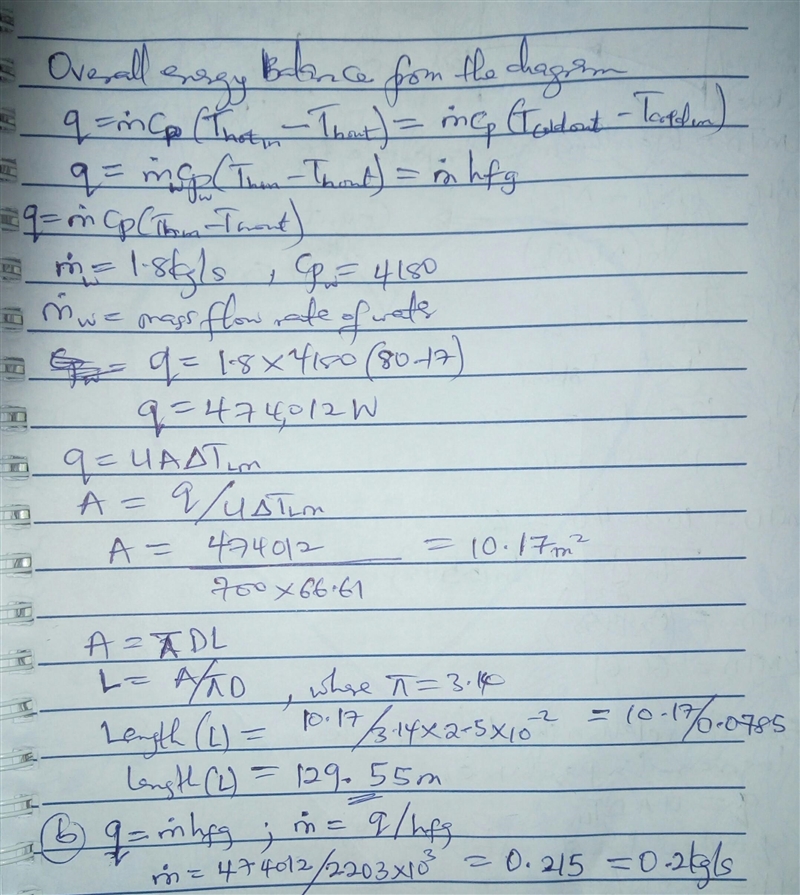 Overall energy Balance from the diagram
q = ṁCp (Thotin − Thout) = ṁCp (Tcoldout − Tcoldin)
q = ṁwCpw (Thin − Thout) = ṁhfg
q = ṁ Cp (Thin − Thout)
ṁw = 1.8kg/s , Cpw = 4180
ṁw = mass flow rate of water
q = 1.8 × 4180 (80-17)
q = 474,012 W
q = UAΔTLm
A = q/UΔTLm
A = 474012 / 700 × 66.61 = 10.17m²
A = πDL
L = A/πD , where π = 3.140
Length (L) = 10.17/3.14×2.5×10⁻² = 10.17/0.0785
Length (L) = 129.55m
(b) q = ṁhfg ; ṁ = q/hfg
ṁ = 474012/2203×10³ = 0.215 = 0.2kg/s